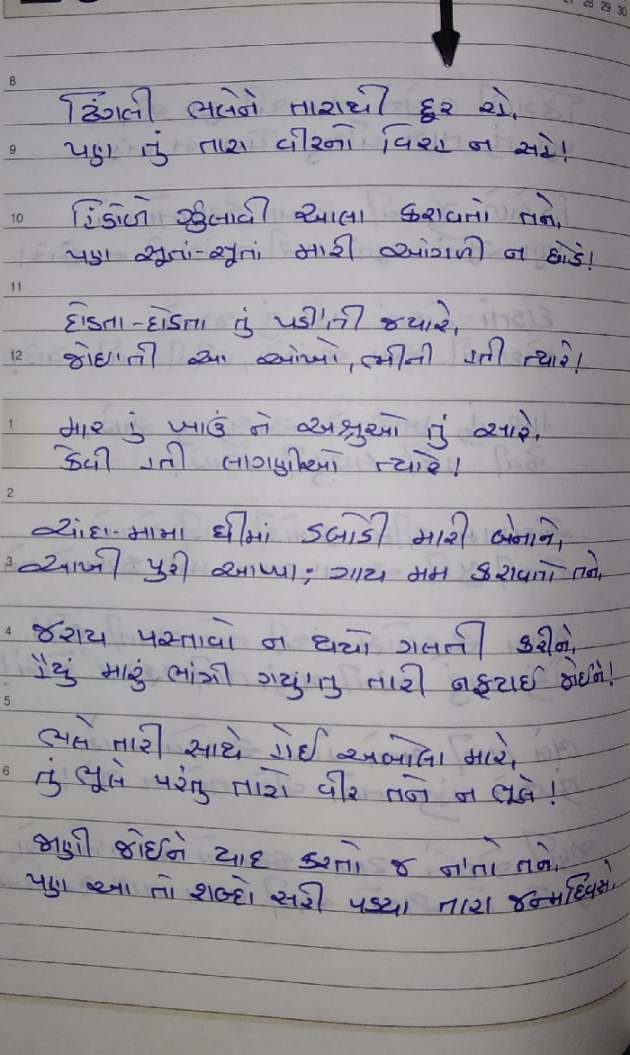 27 28 29 30
8
ઢિંગલી ભલેને તારાથી દૂર રહે,
9 પણ તું તારા વીરનો વિરહ ન સહે!
10 હિંડોળે ઝુલાવી હાલા કરાવતો તને,
પણ સૂતાં-સૂતાં મારી આંગળી ન છોડે!
11
દોડતા-દોડતા તું પડી'તી જ્યારે,
12 જોઇ'તી આ આંખો, ભીની હતી ત્યારે!
1 માર હું ખાઉં ને અશ્રુઓ તું સારે,
કેવી હતી લાગણીઓ ત્યારે!
2
ચાંદા-મામા ઘીમાં ઝબોળી મારી બેનાને,
3 આખી પુરી આપ્યા; ગાય મમ કરાવતો તને,
4 જરાય પસ્તાવો ન થયો ગલતી કરીને,
હૈયું મારું ભાંગી ગયું'તુ તારી નફટાઇ જોઇને!
5
ભલે તારી સાથે હોઈ અબોલા મારે,
6 તું ભૂલે પરંતુ તારો વીર તને ન ભૂલે!
જાણી જોઈને યાદ કરતો જ ન'તો તને,
પણ આ તો શબ્દો સરી પડ્યા તારા જન્મદિવસે.